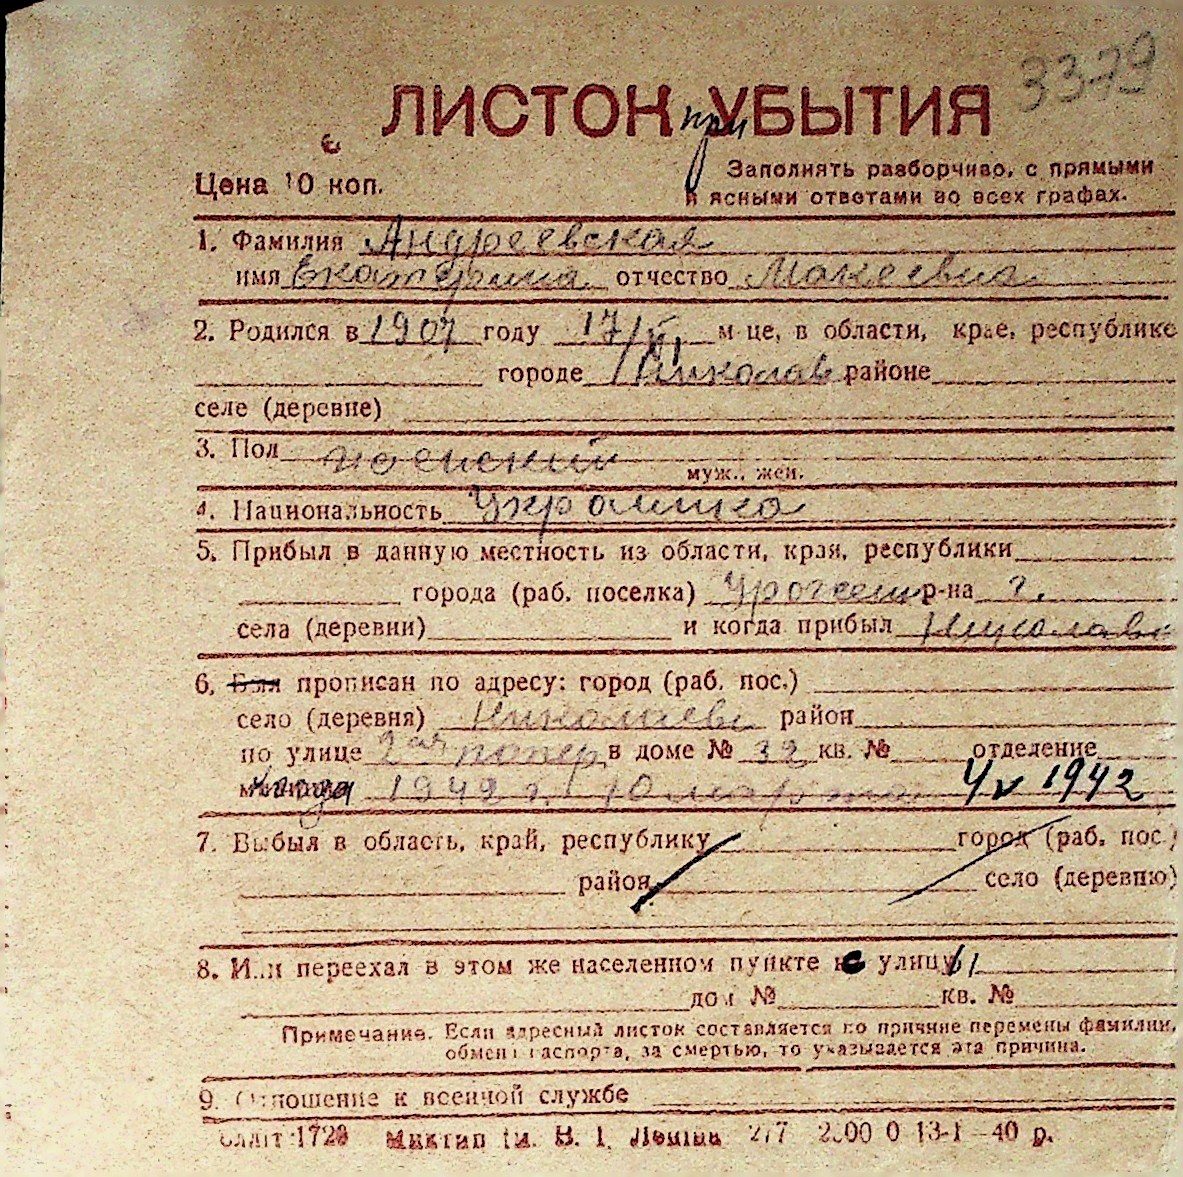 3379
ЛИСТОК при УБЫТИЯ
Цена 10 коп.
Заполнять разборчиво, с прямыми
и ясными ответами во всех графах.
1. Фамилия Андреевская
имя Екатерина отчество Макеевна
2. Родился в 1907 году 17/ м-це, в области, крае, республике
городе Николаев районе
селе (деревне)
3. Пол женский
муж., жен.
4. Национальность Украинка
5. Прибыл в данную местность из области, края, республики
города (раб. поселка) Урожен р-на г.
села (деревни) и когда прибыл Николаев
6. Был прописан по адресу: город (раб. пос.)
село (деревня) Николаев район
по улице 2ая попер в доме № 32 кв. № отделение
1942 г. 10 марта 4/V 1942
7. Выбыл в область, край, республику город (раб. пос.)
район село (деревню)
8. Или переехал в этом же населенном пункте с улицы
дом № кв. №
Примечание. Если адресный листок составляется по причине перемены фамилии,
обмена паспорта, за смертью, то указывается эта причина.
9. Отношение к военной службе
1728 Миктип им. В. І. Леніна 277 2000 0 13-1—40 р.